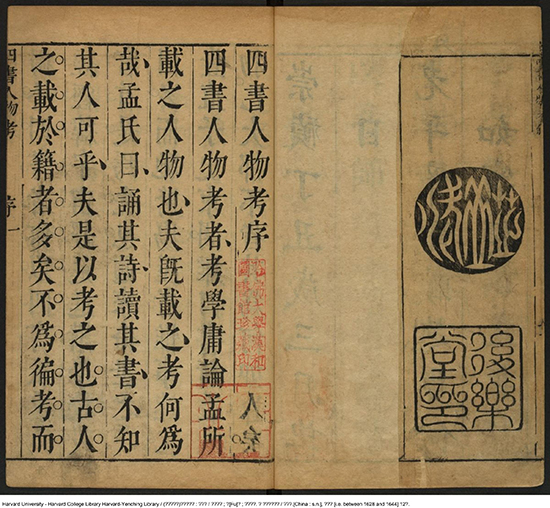 後樂
堂印
四書人物考序
哈佛大學漢和
圖書館珍藏印
四書人物考者考學庸論孟所
載之人物也夫旣載之考何爲
哉孟氏曰誦其詩讀其書不知
其人可乎夫是以考之也古人
之載於籍者多矣不爲徧考而
四書人物考 序 一
Harvard University - Harvard College Library Harvard-Yenching Library / (?????)????? : ??? / ???? ; ?[Fu]? ; ????. ? ?????? / ???.[China : s.n.], ??? [i.e. between 1628 and 1644] 12?.